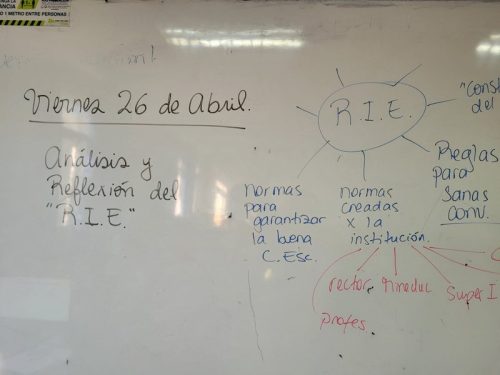 ANCIA
1 METRO ENTRE PERSONAS
Viernes 26 de Abril.
Análisis y
Reflexión del
"R.I.E."
R.I.E.
"Const
del
normas
para
garantizar
la buena
C. Esc.
normas
creadas
x la
institución.
Reglas
para
Sanas
Conv.
rector
mineduc
Super I
profes.